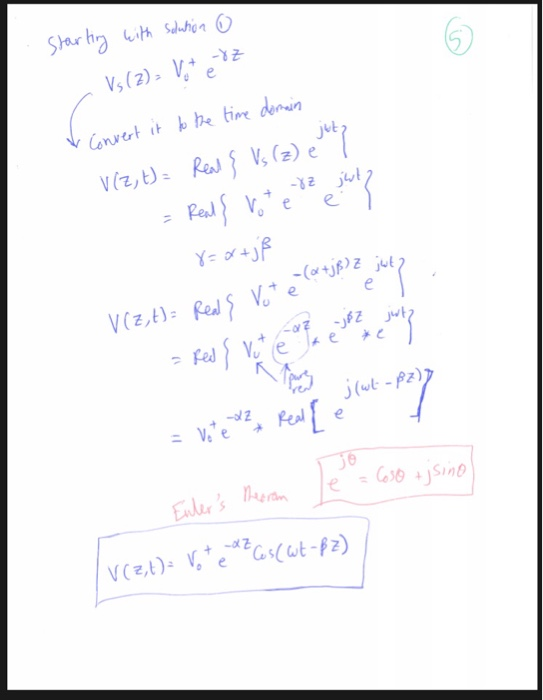 Starting with solution ①
⑤
Vs(z) = V₀⁺ e^-γz
Convert it to the time domain
V(z,t) = Real { Vs(z) e^jωt }
= Real { V₀⁺ e^-γz e^jωt }
γ = α + jβ
V(z,t) = Real { V₀⁺ e^-(α+jβ)z e^jωt }
= Real { V₀⁺ e^-αz * e^-jβz * e^jωt }
pure real
= V₀⁺ e^-αz * Real [ e^j(ωt - βz) ]
Euler's Theorem e^jθ = Cosθ + jSinθ
V(z,t) = V₀⁺ e^-αz Cos(ωt - βz)